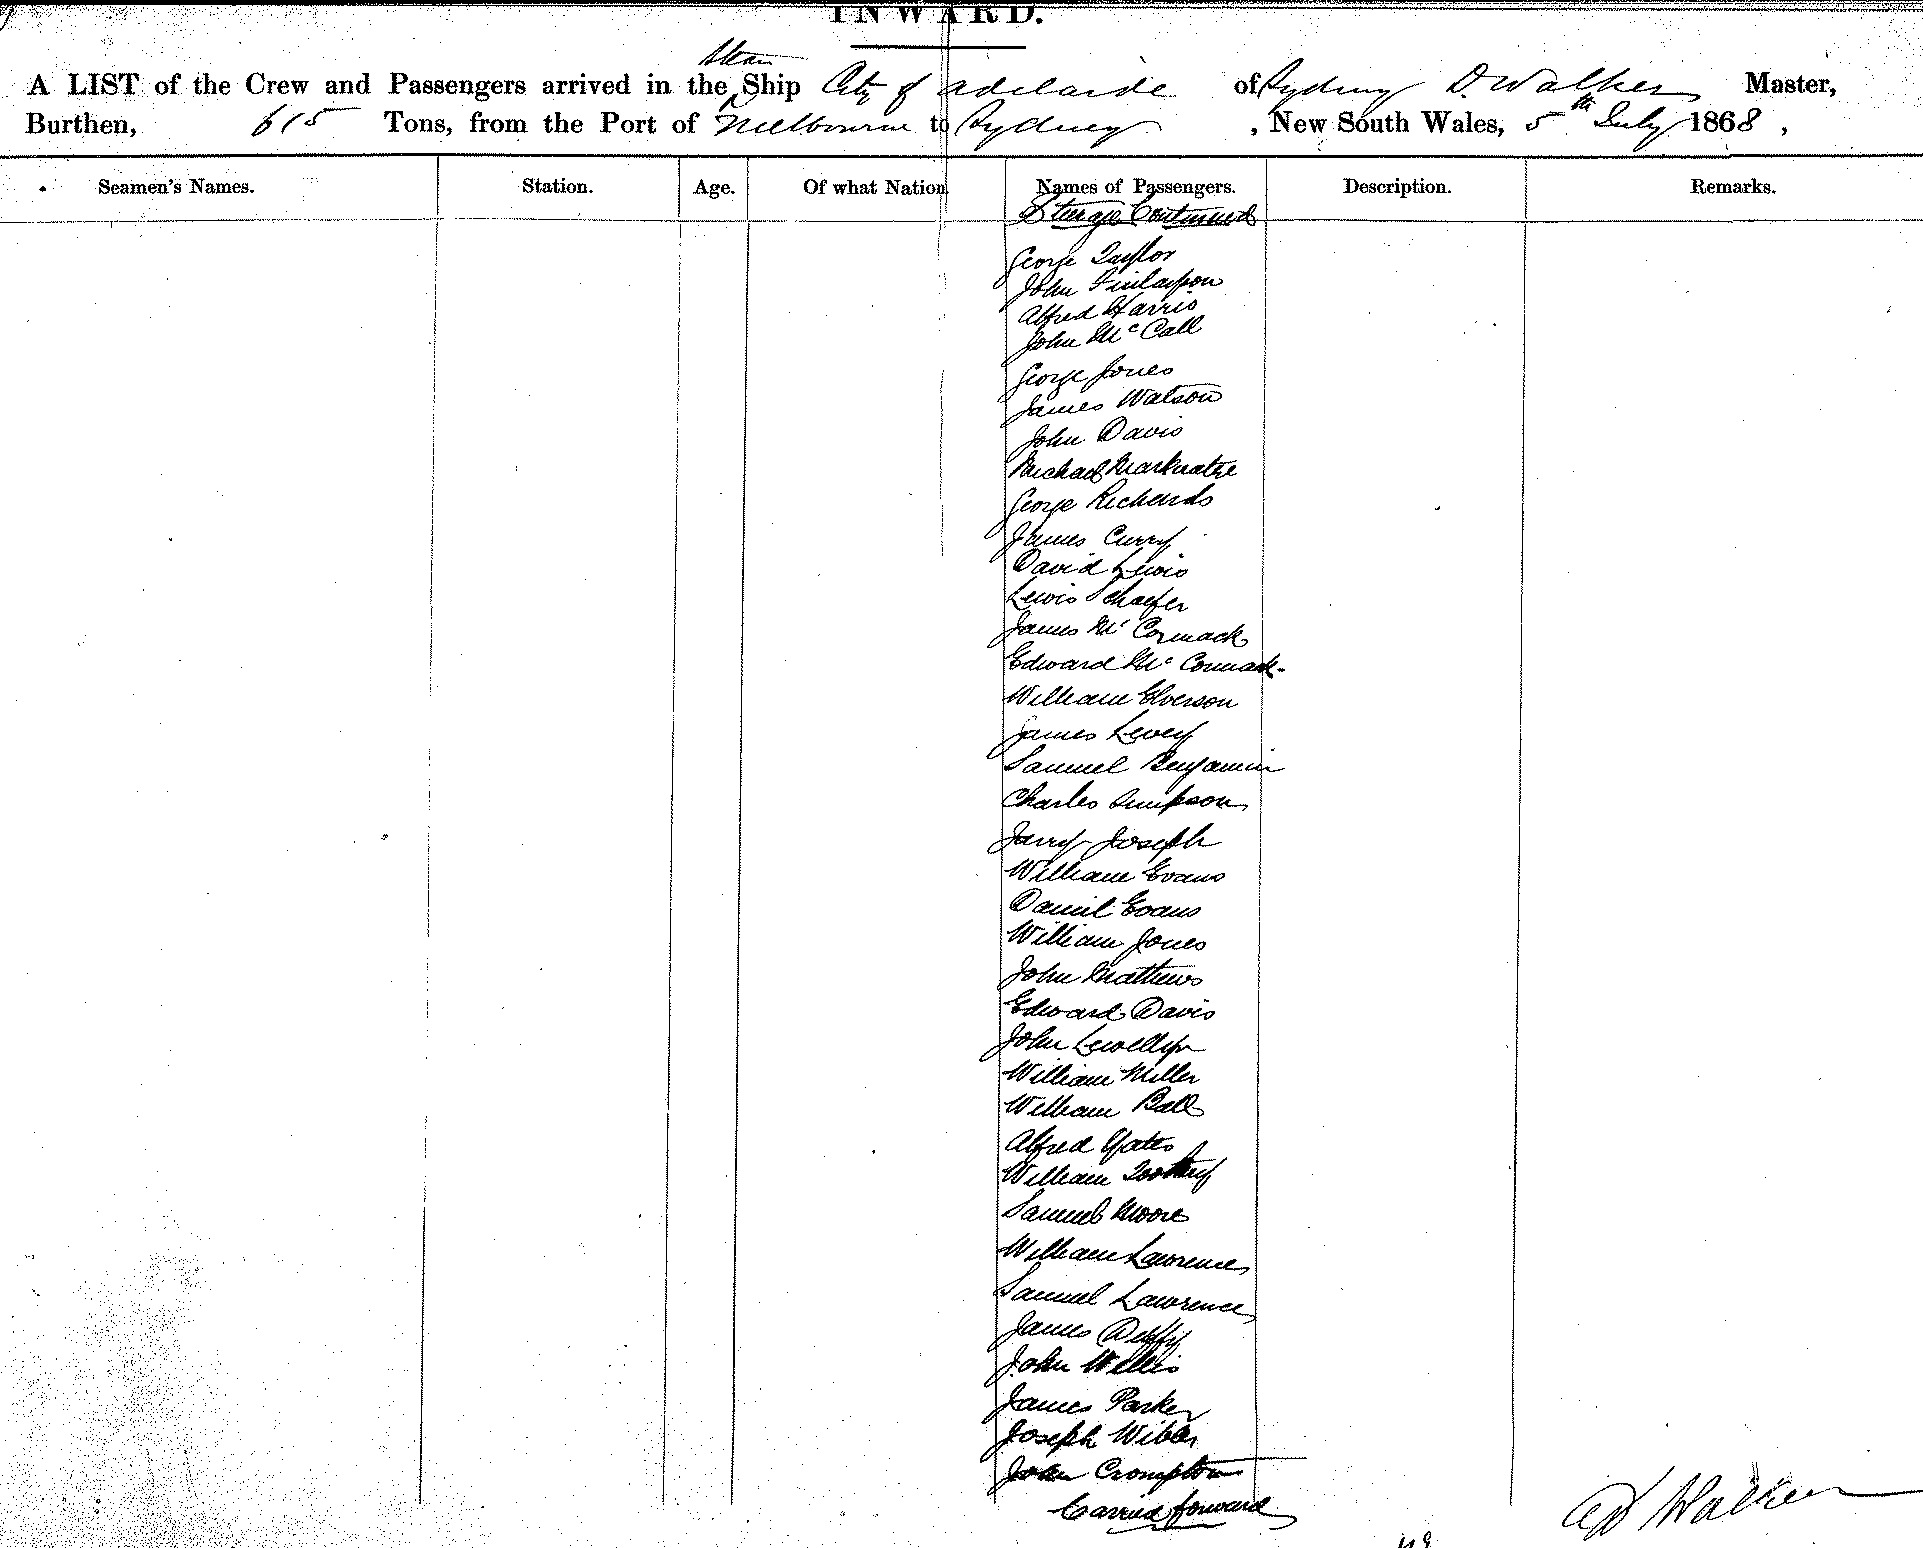 INWARD.
Steam
A LIST of the Crew and Passengers arrived in the Ship City of Adelaide of Sydney D. Walker Master,
Burthen, 615 Tons, from the Port of Melbourne to Sydney, New South Wales, 5th July 1868,
Seamen's Names. Station. Age. Of what Nation Names of Passengers. Description. Remarks.
Steerage Continued
George Taylor
John Finlayson
Alfred Harris
John McCall
George Jones
James Watson
John Davis
Michael
George Richards
James Curry
David Lewis
Lewis Schaefer
James McCormack
Edward McCormack
William Elverson
James Levey
Samuel Benjamin
Charles Simpson
Joseph
William Evans
Daniel Evans
William Jones
John Mathews
Edward Davis
John Lewellyn
William Miller
William Ball
Alfred Yates
William
Samuel Moore
William Lawrence
Samuel Lawrence
James
John Willis
James Parker
Joseph
John Crompton
Carried forward
Walker